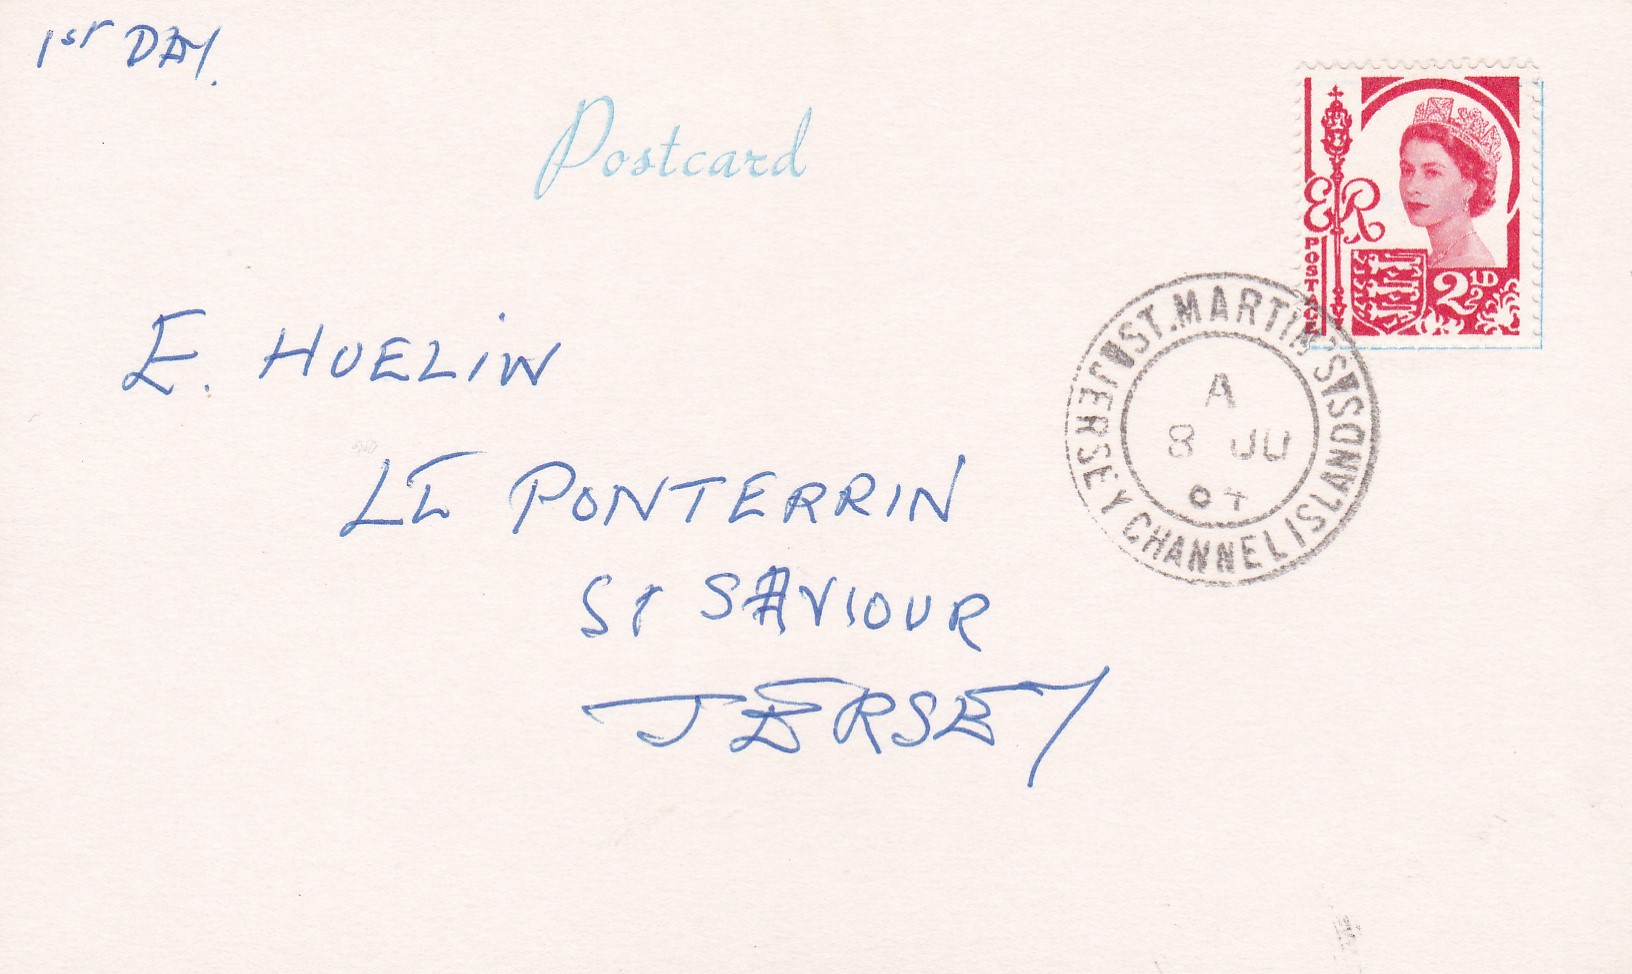 1st DAY.
Postcard
ER
POSTAGE
2½D
ST. MARTIN'S
JERSEY CHANNEL ISLANDS
A
8 JU
E. HUELIN
LE PONTERRIN
ST SAVIOUR
JERSEY